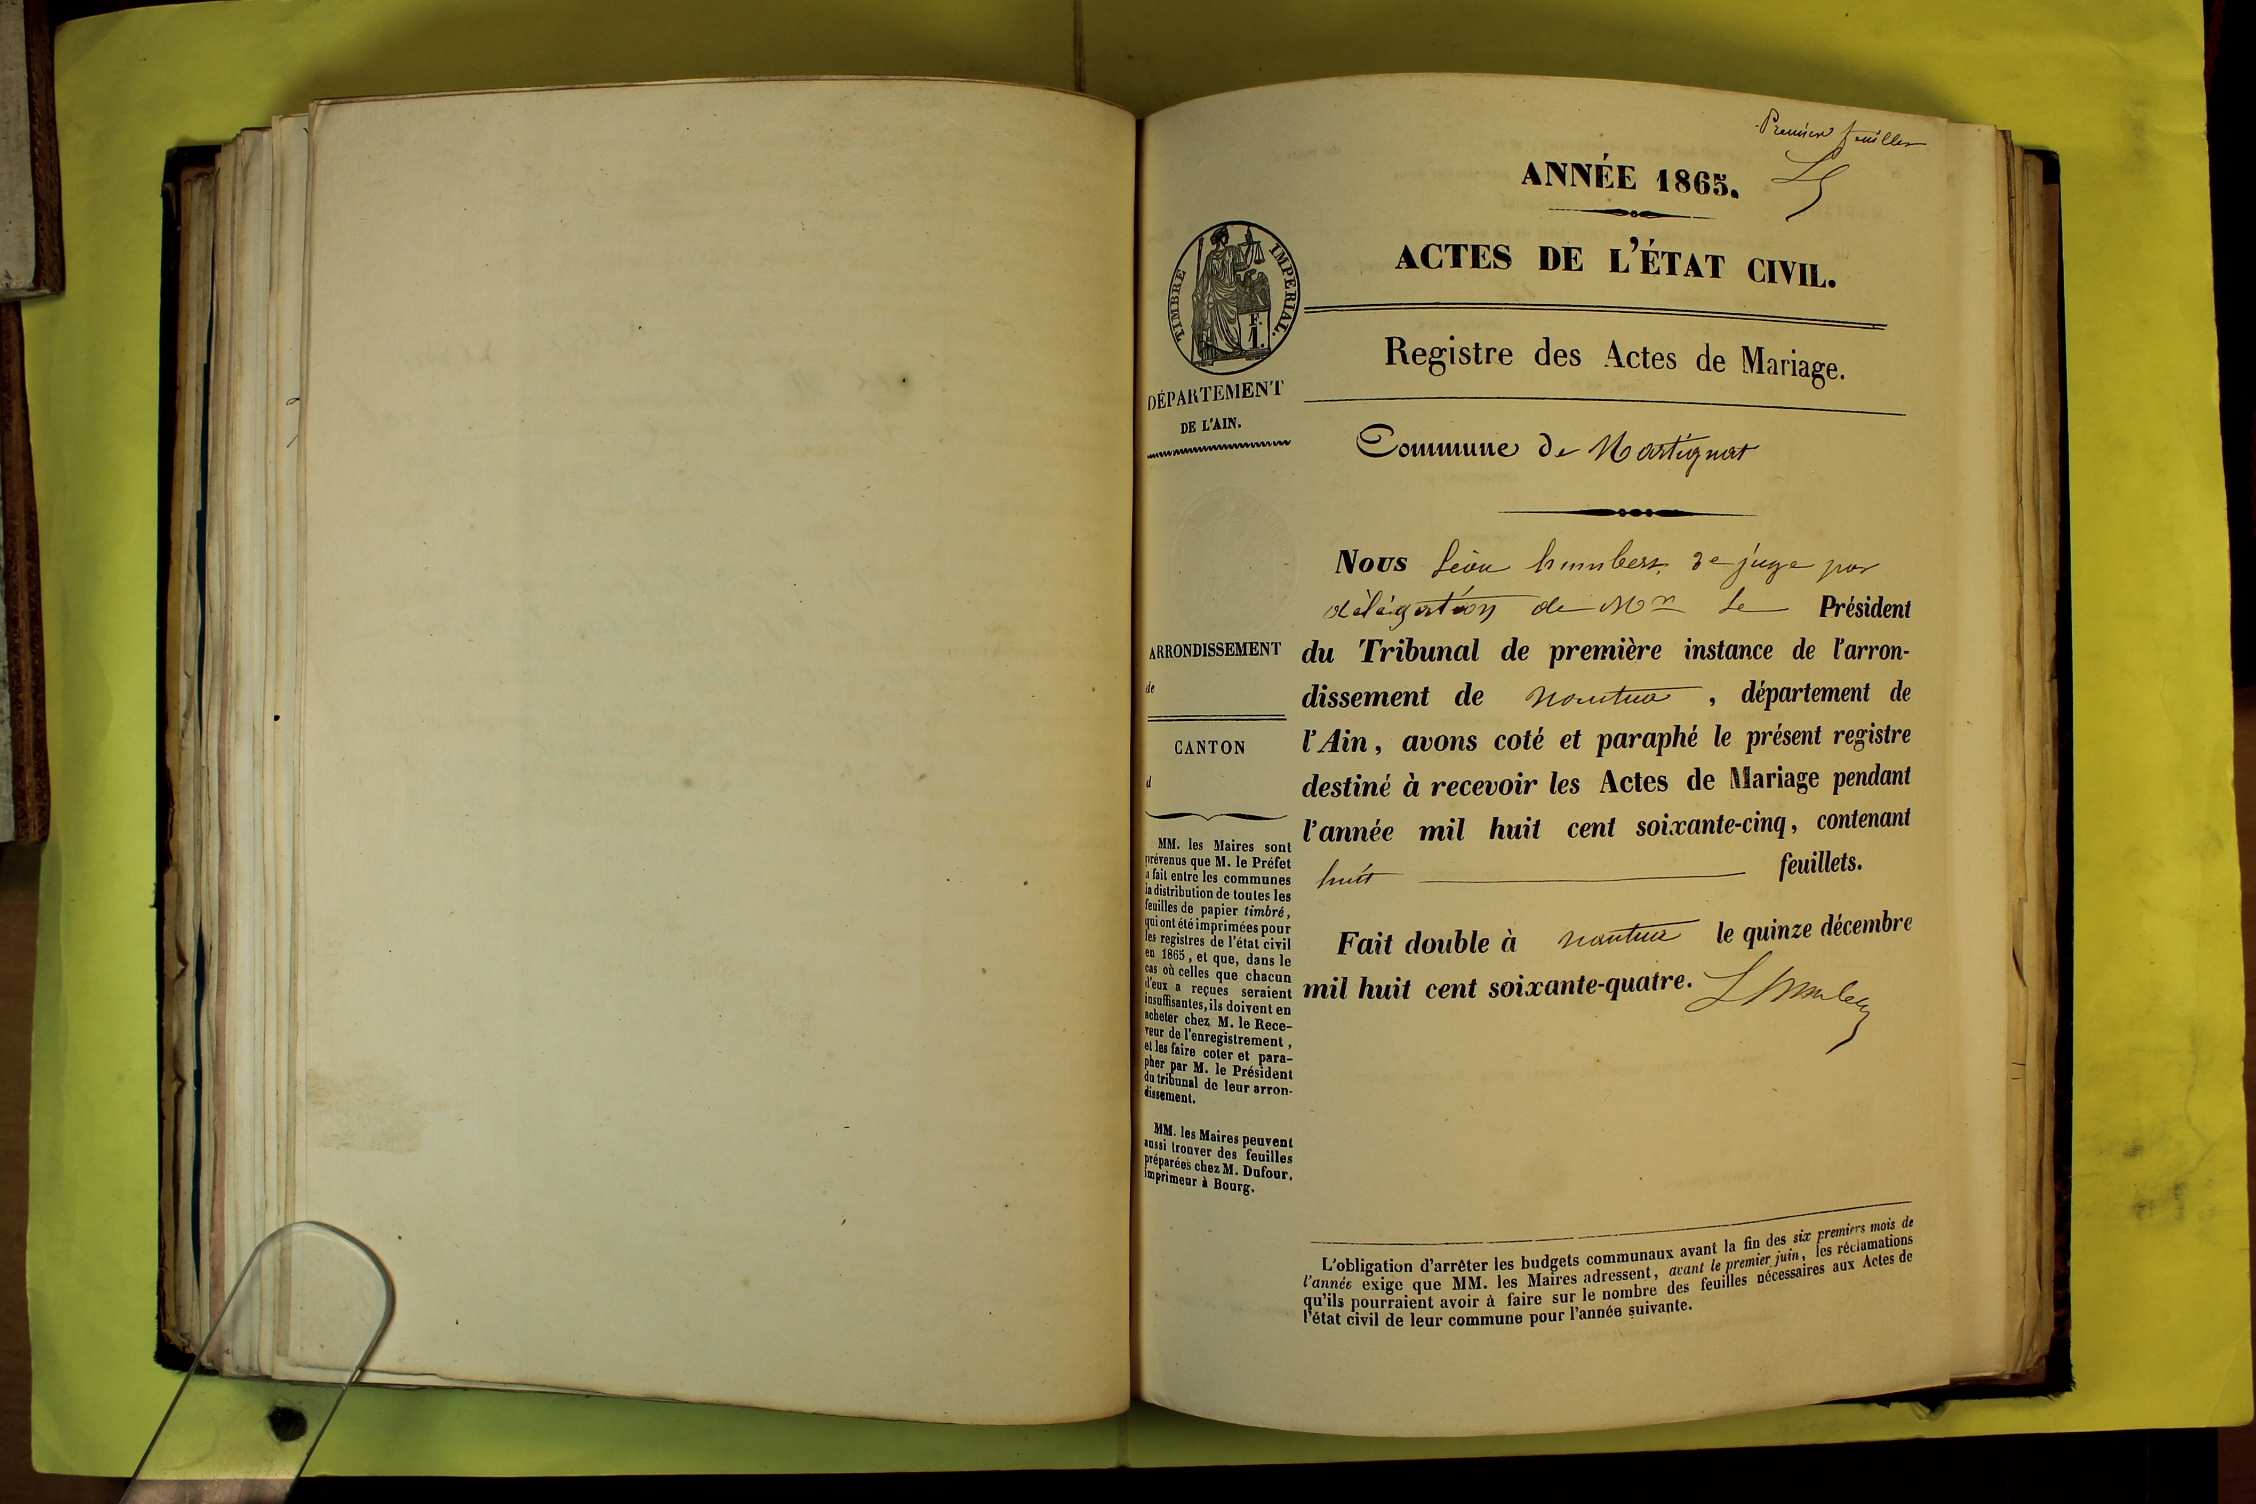 Premier feuillet
ANNÉE 1865.
ACTES DE L'ÉTAT CIVIL.
TIMBRE IMPÉRIAL.
F.
1.
Registre des Actes de Mariage.
DÉPARTEMENT
DE L'AIN.
Commune de Martignat
Nous Léon humbert, 3e juge par
délégation de Mr le Président
du Tribunal de première instance de l'arron-
dissement de nantua, département de
l'Ain, avons coté et paraphé le présent registre
destiné à recevoir les Actes de Mariage pendant
l'année mil huit cent soixante-cinq, contenant
huit feuillets.
Fait double à nantua le quinze décembre
mil huit cent soixante-quatre.
ARRONDISSEMENT
de
CANTON
d
MM. les Maires sont
prévenus que M. le Préfet
a fait entre les communes
la distribution de toutes les
feuilles de papier timbré,
qui ont été imprimées pour
les registres de l'état civil
en 1865, et que, dans le
cas où celles que chacun
d'eux a reçues seraient
insuffisantes, ils doivent en
acheter chez M. le Rece-
veur de l'enregistrement,
et les faire coter et para-
pher par M. le Président
du tribunal de leur arron-
dissement.
MM. les Maires peuvent
aussi trouver des feuilles
préparées chez M. Dufour,
imprimeur à Bourg.
L'obligation d'arrêter les budgets communaux avant la fin des six premiers mois de
l'année exige que MM. les Maires adressent, avant le premier juin, les réclamations
qu'ils pourraient avoir à faire sur le nombre des feuilles nécessaires aux Actes de
l'état civil de leur commune pour l'année suivante.